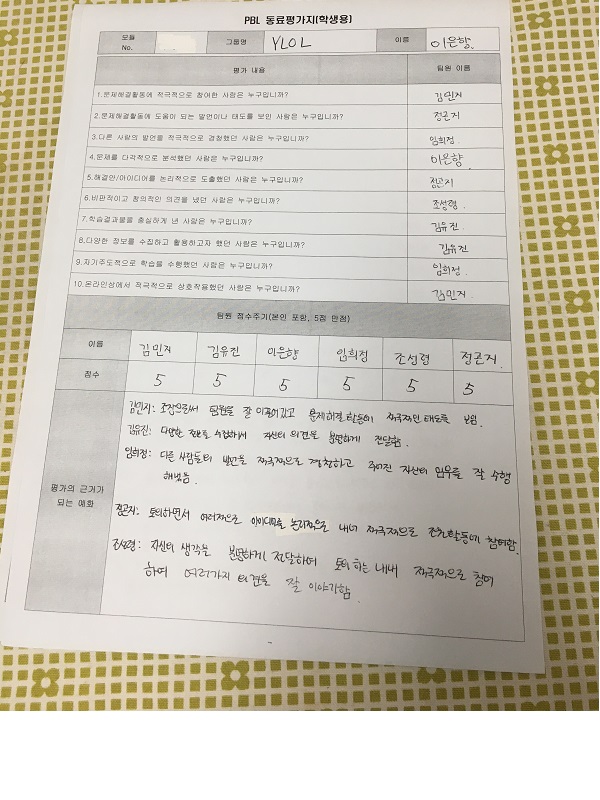 PBL 동료평가지(학생용)
모듈 No. 그룹명 YLOL 이름 이은향
평가 내용 팀원 이름
1.문제해결활동에 적극적으로 참여한 사람은 누구입니까? 김민지
2.문제해결활동에 도움이 되는 발언이나 태도를 보인 사람은 누구입니까? 정은지
3.다른 사람의 발언을 적극적으로 경청했던 사람은 누구입니까? 임희정
4.문제를 다각적으로 분석했던 사람은 누구입니까? 이은향
5.해결안/아이디어를 논리적으로 도출했던 사람은 누구입니까? 정은지
6.비판적이고 창의적인 의견을 냈던 사람은 누구입니까? 조성령
7.학습결과물을 충실하게 낸 사람은 누구입니까? 김유진
8.다양한 정보를 수집하고 활용하고자 했던 사람은 누구입니까? 김유진
9.자기주도적으로 학습을 수행했던 사람은 누구입니까? 임희정
10.온라인상에서 적극적으로 상호작용했던 사람은 누구입니까? 김민지
팀원 점수주기(본인 포함, 5점 만점)
이름 김민지 김유진 이은향 임희정 조성령 정은지
점수 5 5 5 5 5 5
평가의 근거가 되는 예화
김민지: 조장으로써 팀원을 잘 이끌어갔고 문제해결활동에 적극적인 태도를 보임.
김유진: 다양한 정보를 수집해서 자신의 의견을 분명하게 전달함.
임희정: 다른 사람들의 발언을 적극적으로 경청하고 주어진 자신의 임무를 잘 수행
해냈음
정은지: 토의하면서 여러적으로 아이디어를 논리적으로 내며 적극적으로 활동에 참여함.
조성령: 자신의 생각을 분명하게 전달하며 토의하는 내내 적극적으로 참여
하여 여러가지 의견을 잘 이야기함.